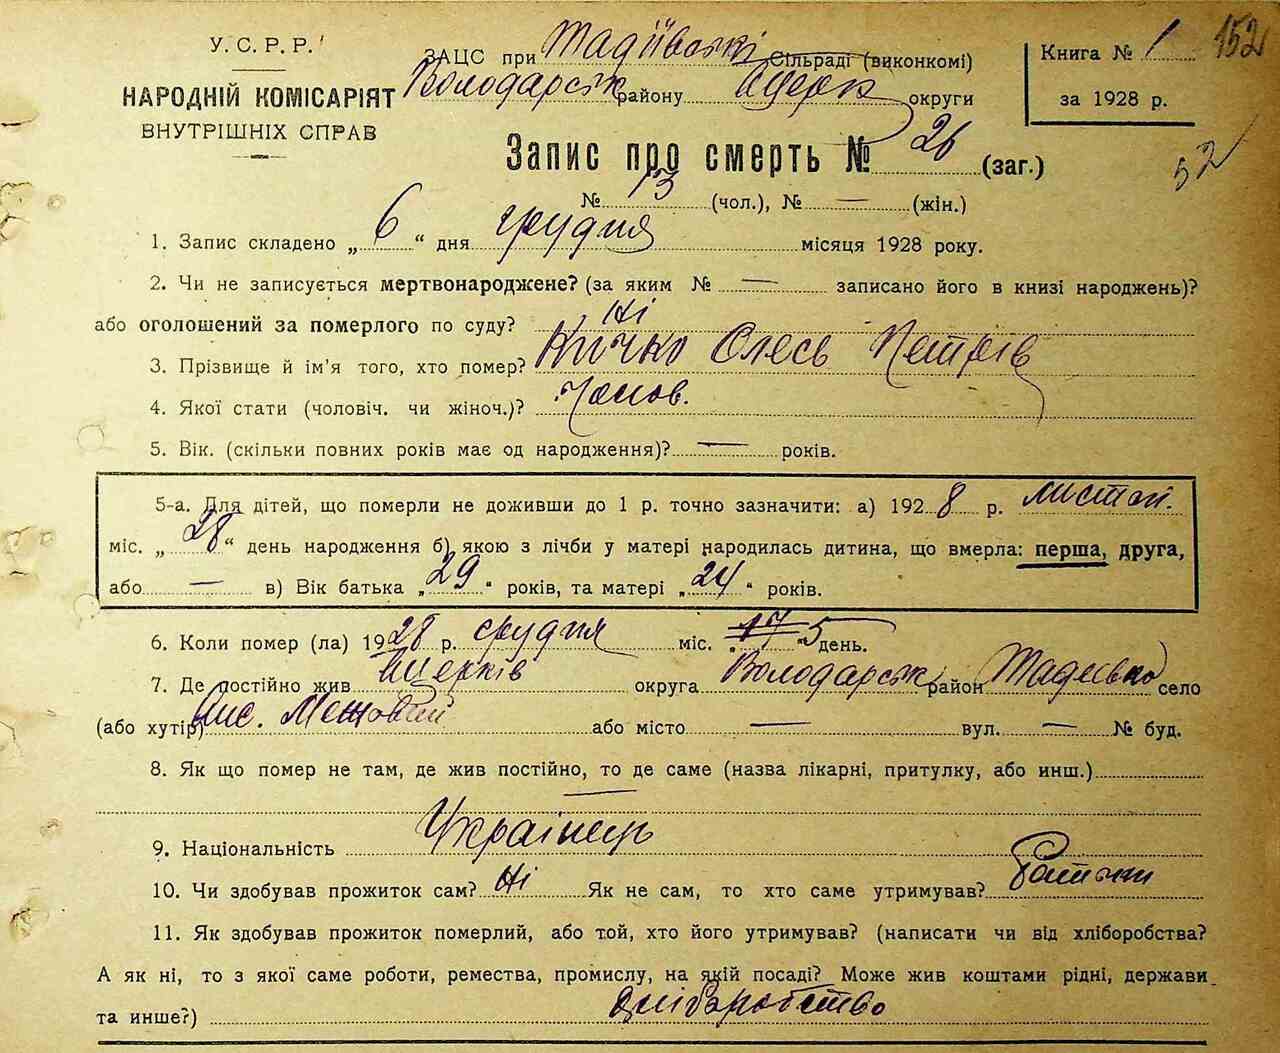 У.С.Р.Р.
НАРОДНІЙ КОМІСАРІЯТ
ВНУТРІШНІХ СПРАВ
ЗАЦС при Тадіївські Сільраді (виконкомі)
Володарськ району Бцерк округи
Книга № 1
за 1928 р.
152
52
Запис про смерть № 26 (заг.)
№ 13 (чол.), № — (жін.)
1. Запис складено „ 6 “ дня грудня місяця 1928 року.
2. Чи не записується мертвонароджене? (за яким № — записано його в книзі народжень)?
або оголошений за померлого по суду? Ні
3. Прізвище й ім'я того, хто помер? Кичко Олесь Петрів
4. Якої стати (чоловіч. чи жіноч.)? Чолов.
5. Вік. (скільки повних років має од народження)? — років.
5-а. Для дітей, що померли не доживши до 1 р. точно зазначити: а) 1928 р. листоп.
міс. „ 28 “ день народження б) якою з лічби у матері народилась дитина, що вмерла: перша, друга,
або — в) Вік батька „ 29 “ років, та матері „ 24 “ років.
6. Коли помер (ла) 1928 р. грудня міс. „ 17 5 “ день.
7. Де постійно жив Бцерків округа Володарськ район Тадіївка село
(або хутір) Межовий або місто — вул. — № буд.
8. Як що помер не там, де жив постійно, то де саме (назва лікарні, притулку, або инш.)
—
9. Національність Українець
10. Чи здобував прожиток сам? Ні Як не сам, то хто саме утримував? Батьки
11. Як здобував прожиток померлий, або той, хто його утримував? (написати чи від хліборобства?
А як ні, то з якої саме роботи, ремества, промислу, на якій посаді? Може жив коштами рідні, держави
та инше?) Хліборобство